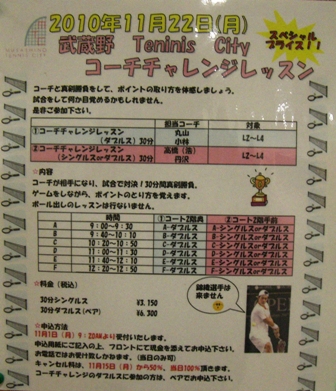 2010年11月22日(月)
武蔵野 Teninis City
スペシャル
プライス!!
コーチチャレンジレッスン
コーチと真剣勝負をして、ポイントの取り方を体感しましょう。
試合をして何か目覚めるかもしれません。
是非ご参加下さい。
担当コーチ 対象
①コーチチャレンジレッスン
(ダブルス) 30分
丸山
小林
L2~L4
②コーチチャレンジレッスン
(シングルスorダブルス) 30分
高橋(浩)
丹沢
L2~L4
☆内容
コーチが相手になり、試合で対決!30分間真剣勝負。
ゲームをしながら、ポイントのとり方を覚えます。
ボール出しのレッスンは行ないません。
時間 ①コート2階奥 ②コート2階手前
A 9:00~9:30 A-ダブルス A-シングルスorダブルス
B 9:40~10:10 B-ダブルス B-シングルスorダブルス
C 10:20~10:50 C-ダブルス C-シングルスorダブルス
D 11:00~11:30 D-ダブルス D-シングルスorダブルス
E 11:40~12:10 E-ダブルス E-シングルスorダブルス
F 12:20~12:50 F-ダブルス F-シングルスorダブルス
☆料金(税込)
30分シングルス ¥3,150
30分ダブルス(ペア) ¥6,300
錦織選手は
来ません
☆申込方法
11月1日(月)9:20AMより受付いたします。
申込用紙にご記入の上、フロントにて現金を添えてお申込下さい。
お電話ではお受け致しかねます。(当日のみ可)
キャンセル料は、11月15日(月)から50%、当日100%頂きます。
コーチチャレンジのダブルスに参加の方は、ペアでお申込下さい。